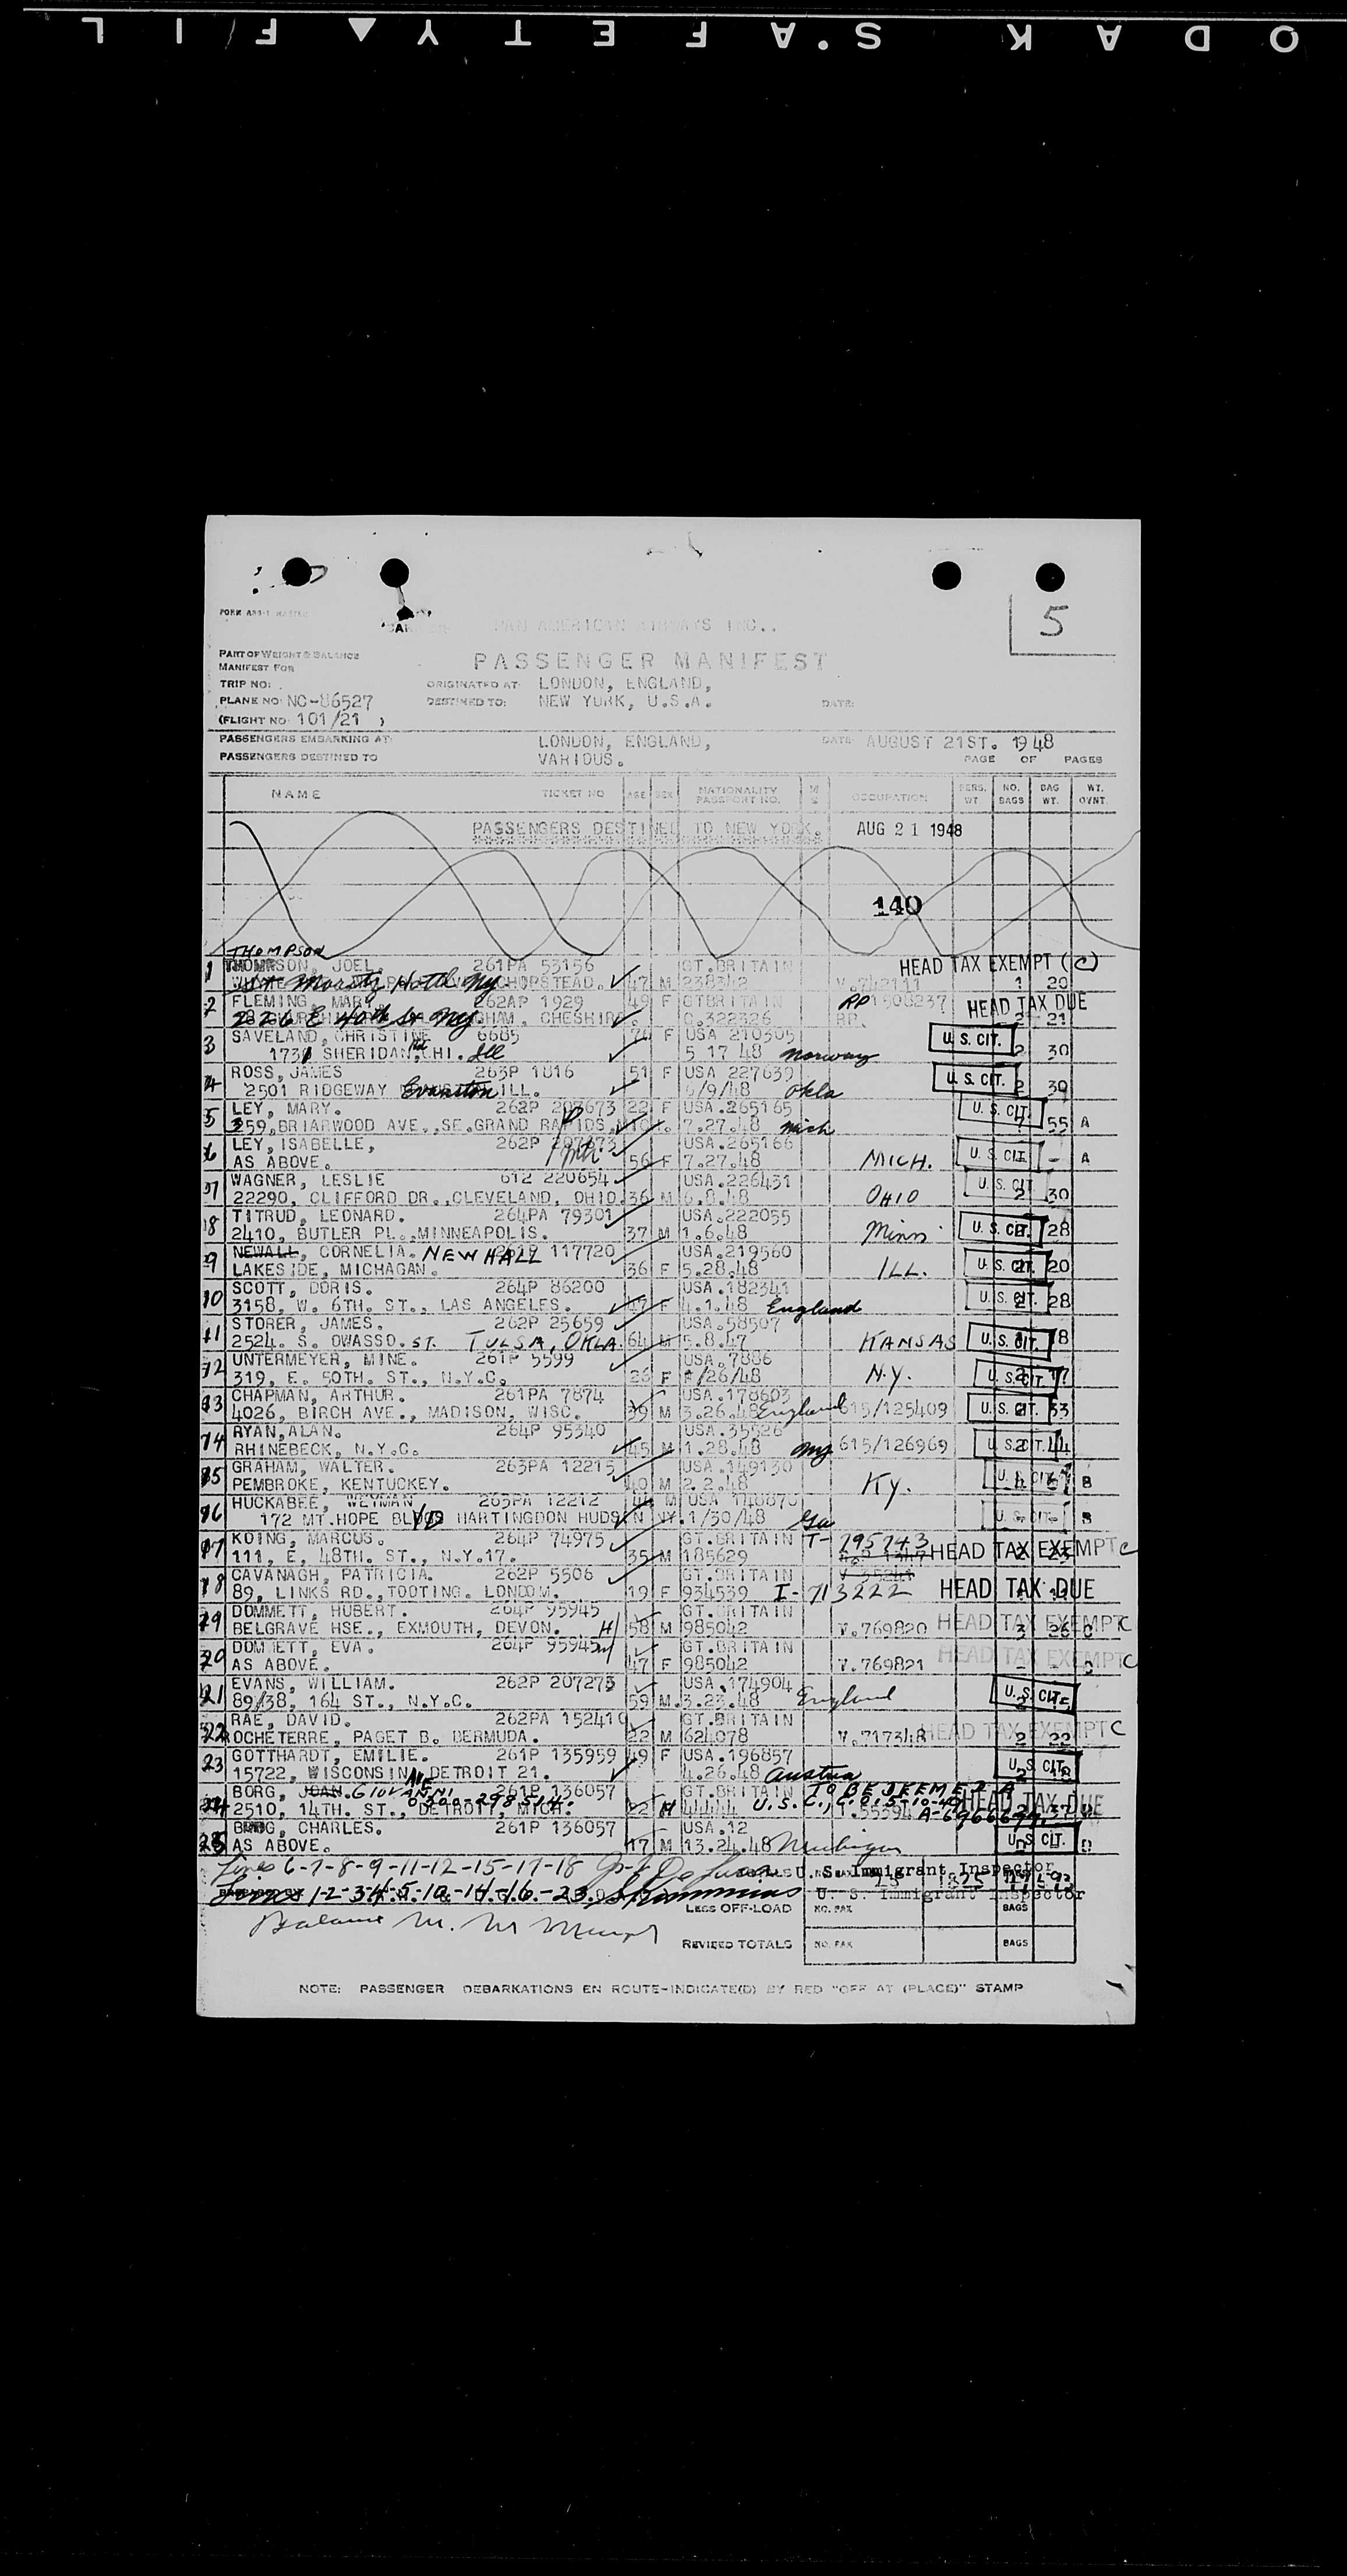 ODAK S.AFETY ▲ FILL
5
PAN AMERICAN AIRWAYS INC..
PASSENGER MANIFEST
PART OF WEIGHT & BALANCE
MANIFEST FOR
TRIP NO:
ORIGINATED AT: LONDON, ENGLAND,
PLANE NO: NC-86527 DESTINED TO: NEW YORK, U.S.A. DATE:
(FLIGHT NO: 101/21 )
PASSENGERS EMBARKING AT: LONDON, ENGLAND, DATE: AUGUST 21ST. 1948
PASSENGERS DESTINED TO VARIOUS. PAGE OF PAGES
NAME TICKET NO AGE SEX NATIONALITY PASSPORT NO. M S OCCUPATION PERS. WT NO. BAGS BAG WT. WT. OVNT.
PASSENGERS DESTINED TO NEW YORK. AUG 21 1948
140
THOMPSON
1 THOMPSON, JOEL. 261PA 53156 GT.BRITAIN HEAD TAX EXEMPT (C)
St Moritz Hotel NY CHOPSTEAD. 47 M 238342 V.742111 1 20
2 FLEMING, MARY. 262AP 1929 49 F GTBRITAIN RP 1508237 HEAD TAX DUE
226 E 40th St NY CHESHIRE C.322326 RP. 2 21
3 SAVELAND, CHRISTINE 6685 74 F USA 210305 U.S. CIT.
1731 SHERIDAN Rd CHI. Ill 5 17 48 Norway 2 30
4 ROSS, JAMES 263P 1816 51 F USA 227639 U.S. CIT.
2501 RIDGEWAY Evanston ILL. 6/9/48 Okla 2 30
5 LEY, MARY. 262P 207673 22 F USA.265165 U.S. CIT.
359, BRIARWOOD AVE., SE.GRAND RAPIDS, 7.27.48 Mich 55 A
6 LEY, ISABELLE, 262P 207673 USA.265166 U.S. CIT.
AS ABOVE. 56 F 7.27.48 MICH. - A
7 WAGNER, LESLIE 612 220654 USA.226431 U.S. CIT.
22290, CLIFFORD DR., CLEVELAND, OHIO. 36 M 6.8.48 OHIO 2 30
8 TITRUD, LEONARD. 264PA 79301 USA.222055 U.S. CIT.
2410, BUTLER PL., MINNEAPOLIS. 37 M 1.6.48 Minn 28
9 NEWALL, CORNELIA. NEWHALL 117720 USA.219560 U.S. CIT.
LAKESIDE, MICHAGAN. 36 F 5.28.48 ILL. 20
10 SCOTT, DORIS. 264P 86200 USA.182341 U.S. CIT.
3158, W. 6TH. ST., LAS ANGELES. 47 F 4.1.48 England 28
11 STORER, JAMES. 262P 25659 USA.58507 U.S. CIT.
2524. S. OWASSO. ST. TULSA, OKLA. 64 M 5.8.47 KANSAS 18
12 UNTERMEYER, MINE. 261P 5599 USA.7886 U.S. CIT.
319, E. 50TH. ST., N.Y.C. 26 F /26/48 N.Y. 17
13 CHAPMAN, ARTHUR. 261PA 7874 USA.178603 U.S. CIT.
4026, BIRCH AVE., MADISON, WISC. 39 M 3.26.48 England 615/125409 33
14 RYAN, ALAN. 264P 95340 USA.35526 U.S. CIT.
RHINEBECK, N.Y.C. 45 M 1.28.48 NY 615/126969 44
15 GRAHAM, WALTER. 263PA 12215 USA.149130 U.S. CIT.
PEMBROKE, KENTUCKEY. 40 M 2.2.48 KY. B
16 HUCKABEE, WEYMAN 263PA 12212 M USA 148870 U.S. CIT.
172 MT.HOPE BLVD HARTINGDON HUDSN NY. 1/30/48 Ga B
17 KOING, MARCUS. 264P 74975 GT.BRITAIN T-795743 HEAD TAX EXEMPT C
111, E, 48TH. ST., N.Y.17. 35 M 185629
18 CAVANAGH, PATRICIA. 262P 5506 GT.BRITAIN
89, LINKS RD., TOOTING. LONDOM. 19 F 934539 I-713222 HEAD TAX DUE
19 DOMMETT, HUBERT. 264P 95945 GT.BRITAIN HEAD TAX EXEMPT C
BELGRAVE HSE., EXMOUTH, DEVON. H 58 M 985042 V.769820 3 26 C
20 DOMMETT, EVA. 264P 95945 GT.BRITAIN HEAD TAX EXEMPT C
AS ABOVE. 47 F 985042 V.769821 - - C
21 EVANS, WILLIAM. 262P 207273 USA.174904 U.S. CIT.
89/38, 164 ST., N.Y.C. 59 M 3.23.48 England
22 RAE, DAVID. 262PA 152410 GT.BRITAIN HEAD TAX EXEMPT C
ROCHETERRE, PAGET B. BERMUDA. 22 M 624078 V.717348 2 22
23 GOTTHARDT, EMILIE. 261P 135959 49 F USA.196857 U.S. CIT.
15722, WISCONSIN AVE DETROIT 21. 4.26.48 Austria
24 BORG, JOAN. GIOVANNI 261P 136057 GT.BRITAIN TO BE DEEMED A
2510, 14TH. ST., DETROIT, MICH. 0300-298514. 22 M 44444 U.S.C., HEAD TAX DUE
25 BORG, CHARLES. 261P 136057 USA.12 U.S. CIT.
AS ABOVE. 17 M 13.24.48 Michigan
Lines 6-7-8-9-11-12-15-17-18 U.S. Immigrant Inspector
Lines 1-2-3-4-5-10-14-16-23 U. S. Immigrant Inspector
LESS OFF-LOAD NO. PAX BAGS
Balance
REVISED TOTALS NO. PAX BAGS
NOTE: PASSENGER DEBARKATIONS EN ROUTE-INDICATE(D) BY RED "OFF AT (PLACE)" STAMP